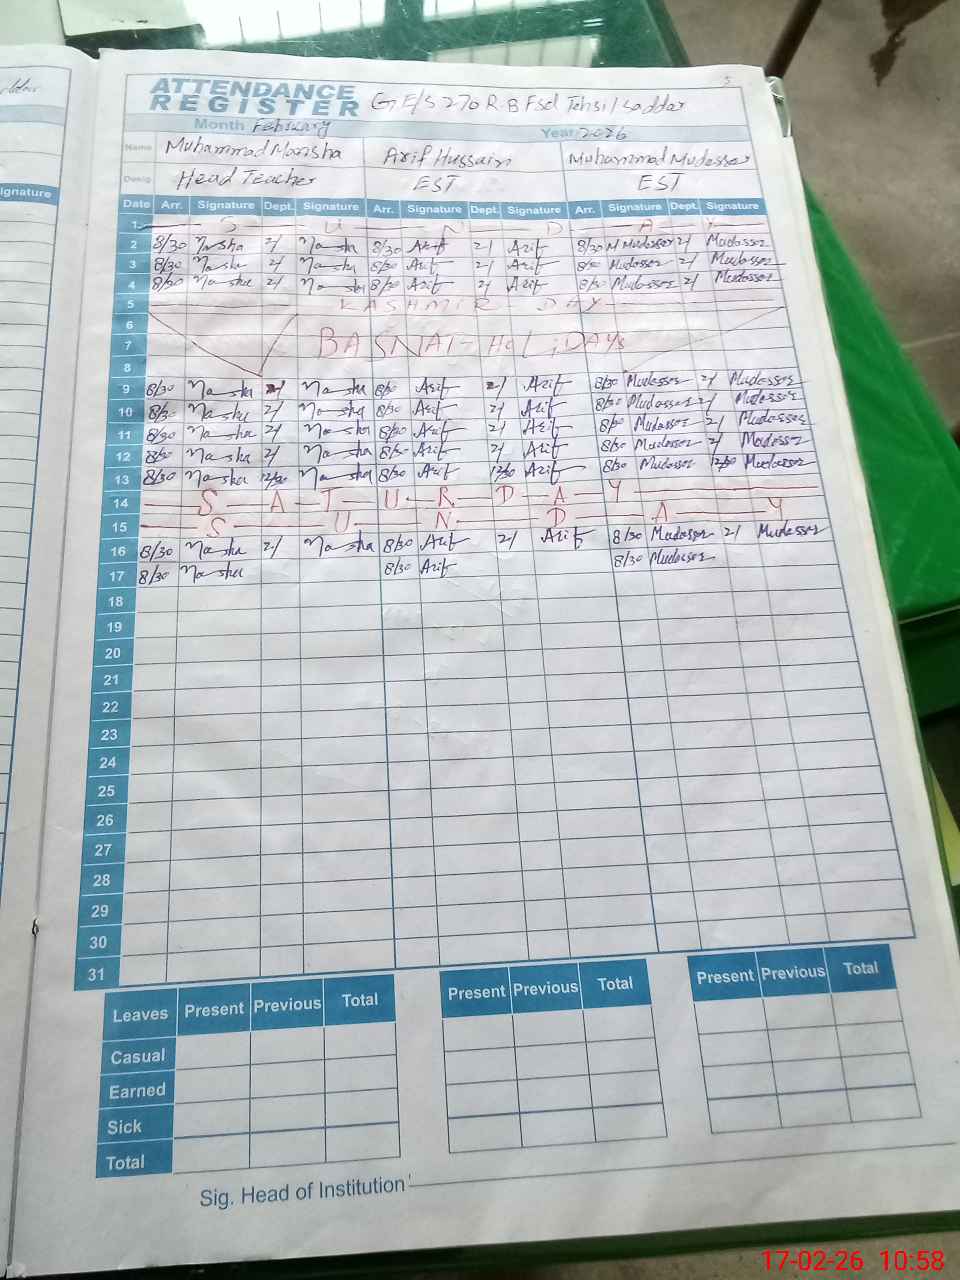 5
ATTENDANCE
REGISTER G.E/S 270 R-B Fsd Tehsil Saddar
Month February Year 2026
Name Muhammad Mansha Arif Hussain Muhammad Mudasser
Desig Head Teacher EST EST
Date Arr. Signature Dept. Signature Arr. Signature Dept. Signature Arr. Signature Dept. Signature
1 S U N D A Y
2 8/30 Mansha 2/ Mansha 8/30 Arif 2/ Arif 8/30 M Mudasser 2/ Mudasser
3 8/30 Mansha 2/ Mansha 8/30 Arif 2/ Arif 8/30 Mudasser 2/ Mudasser
4 8/30 Mansha 2/ Mansha 8/30 Arif 2/ Arif 8/30 Mudasser 2/ Mudasser
5 KASHMIR DAY
6
7 BASNAT HOLIDAYS
8
9 8/30 Mansha 2/ Mansha 8/30 Arif 2/ Arif 8/30 Mudasser 2/ Mudasser
10 8/30 Mansha 2/ Mansha 8/30 Arif 2/ Arif 8/30 Mudasser 2/ Mudasser
11 8/30 Mansha 2/ Mansha 8/30 Arif 2/ Arif 8/30 Mudasser 2/ Mudasser
12 8/30 Mansha 2/ Mansha 8/30 Arif 2/ Arif 8/30 Mudasser 2/ Mudasser
13 8/30 Mansha 12/30 Mansha 8/30 Arif 12/30 Arif 8/30 Mudasser 12/30 Mudasser
14 S A T U R D A Y
15 S U N D A Y
16 8/30 Mansha 2/ Mansha 8/30 Arif 2/ Arif 8/30 Mudasser 2/ Mudasser
17 8/30 Mansha 8/30 Arif 8/30 Mudasser
18
19
20
21
22
23
24
25
26
27
28
29
30
31
Leaves Present Previous Total Present Previous Total Present Previous Total
Casual
Earned
Sick
Total
Sig. Head of Institution
17-02-26 10:58